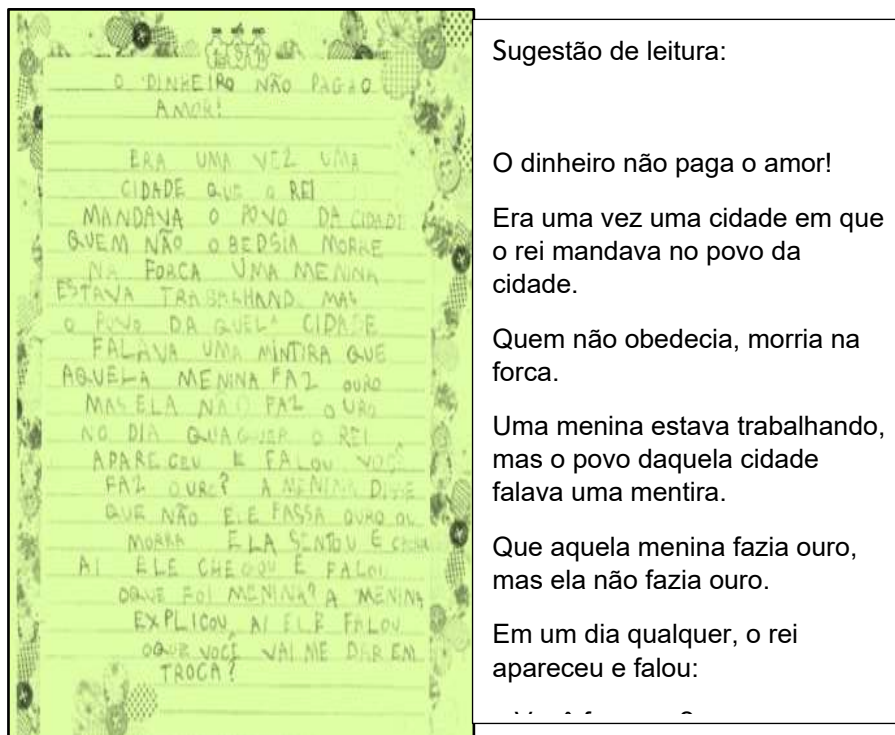 O DINHEIRO NÃO PAGAO
AMOR!
ERA UMA VEZ UMA
CIDADE QUE O REI
MANDAVA O POVO DA CIDADE
QUEM NÃO OBEDSIA MORRE
NA FORCA UMA MENINA
ESTAVA TRABALHANDO MAS
O POVO DA QUELA CIDADE
FALAVA UMA MINTIRA QUE
AQUELA MENINA FAZ OURO
MAS ELA NÃO FAZ OURO
NO DIA QUAGUER O REI
APARECEU E FALOU VOCÊ
FAZ OURO? A MENINA DISSE
QUE NÃO ELE FASSA OURO OU
MORRA ELA SENTOU E
AI ELE CHEGOU E FALOU
OQUE FOI MENINA? A MENINA
EXPLICOU, AI ELE FALOU
OQUE VOCÊ VAI ME DAR EM
TROCA?
Sugestão de leitura:
O dinheiro não paga o amor!
Era uma vez uma cidade em que
o rei mandava no povo da
cidade.
Quem não obedecia, morria na
forca.
Uma menina estava trabalhando,
mas o povo daquela cidade
falava uma mentira.
Que aquela menina fazia ouro,
mas ela não fazia ouro.
Em um dia qualquer, o rei
apareceu e falou: